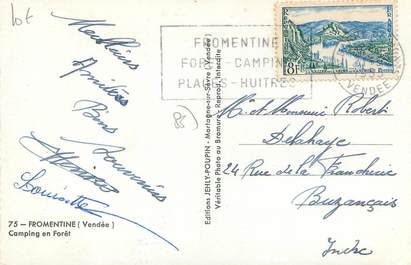 lot
FROMENTINE
FORÊT-CAMPING
PLAGES-HUITRES
8F
VENDÉE
85)
Meilleurs
Amitiés
Bons Souvenirs
Louisette
Editions JEHLY-POUPIN - Mortagne-sur-Sèvre (Vendée)
Véritable Photo au Bromure - Reprod. Interdite
M. et Monsieur Robert
Delahaye
24 Rue de la
Buzançais
Indre
75 — FROMENTINE (Vendée)
Camping en Forêt